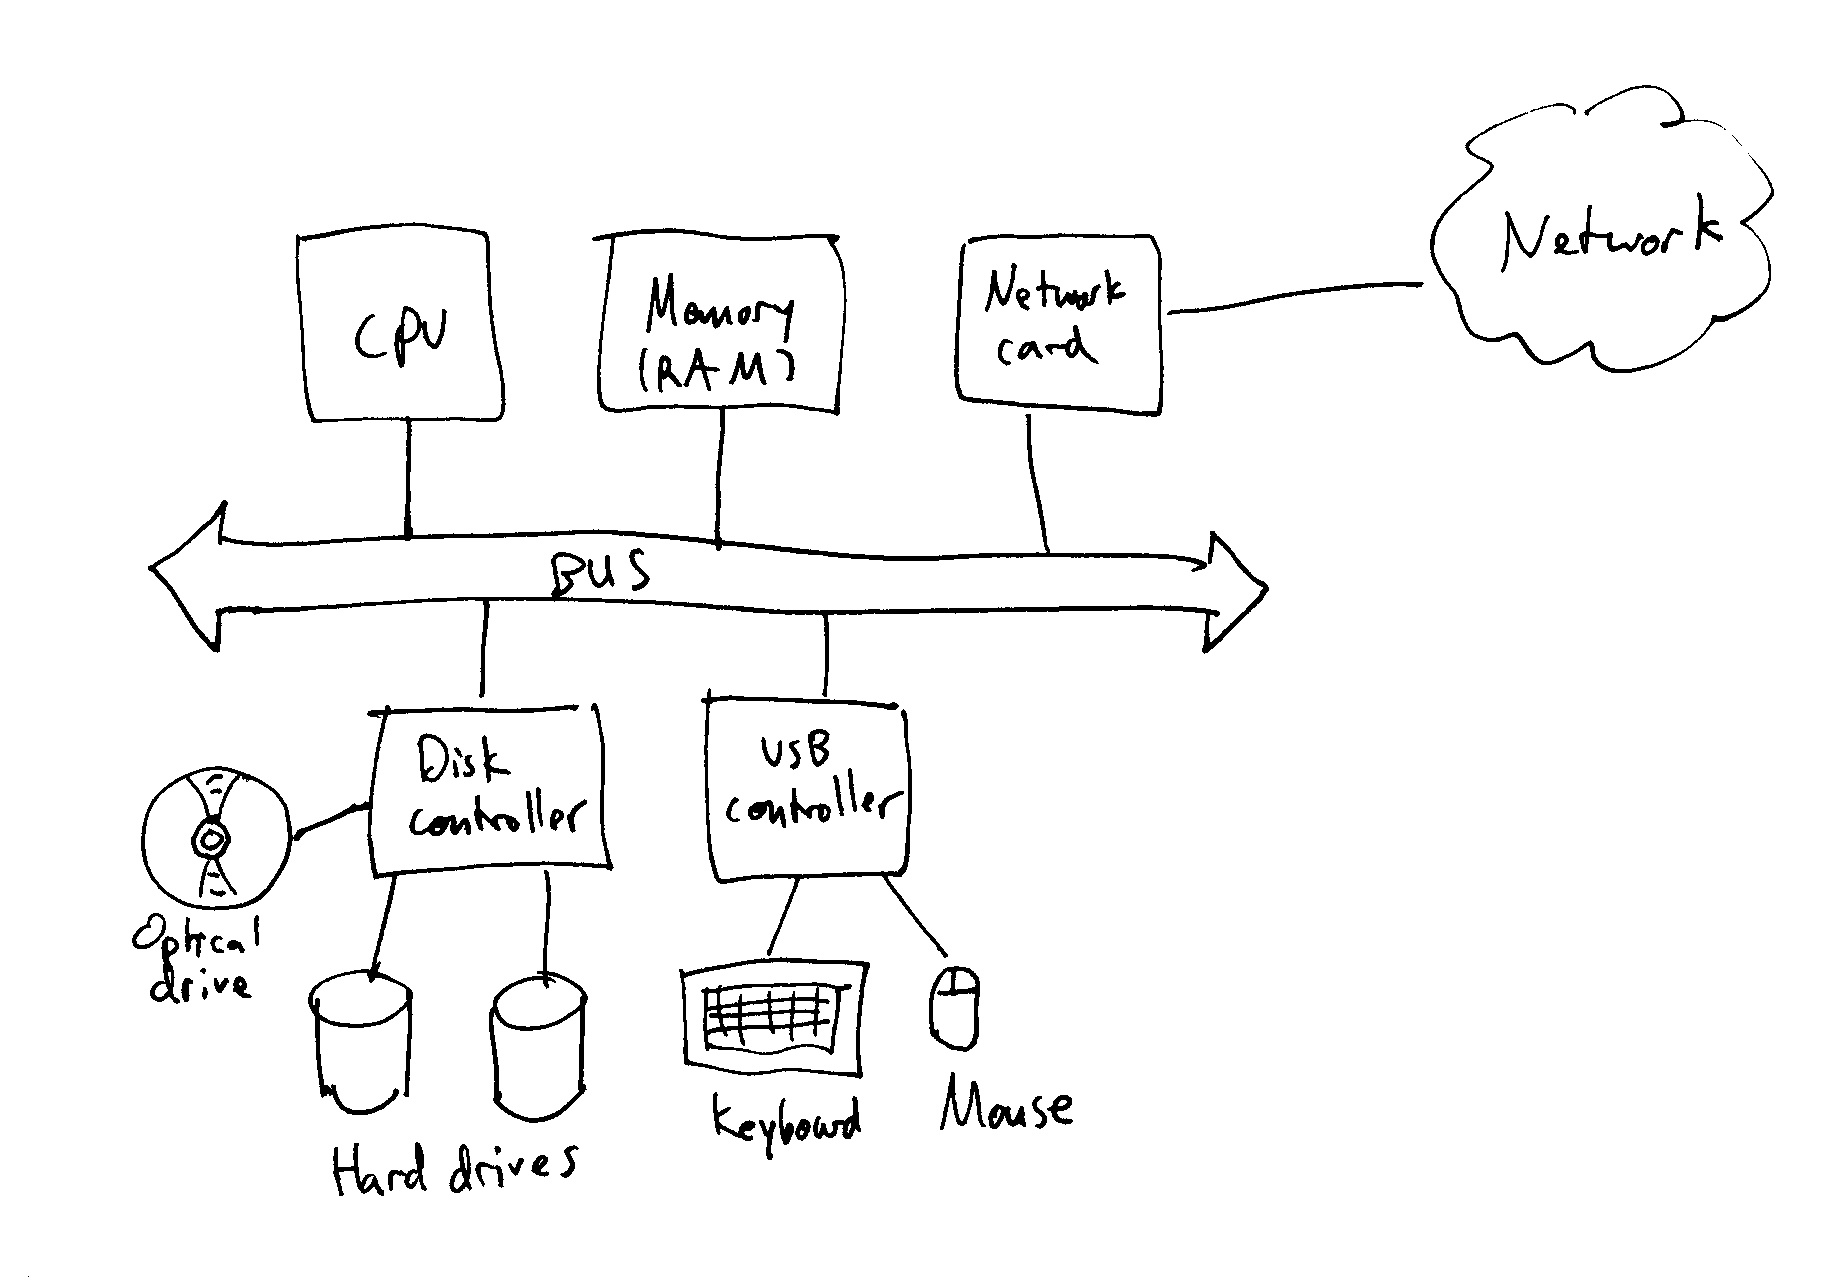 CPU
Memory
(RAM)
Network
card
Network
BUS
Disk
controller
USB
controller
Optical
drive
Hard drives
Keyboard
Mouse